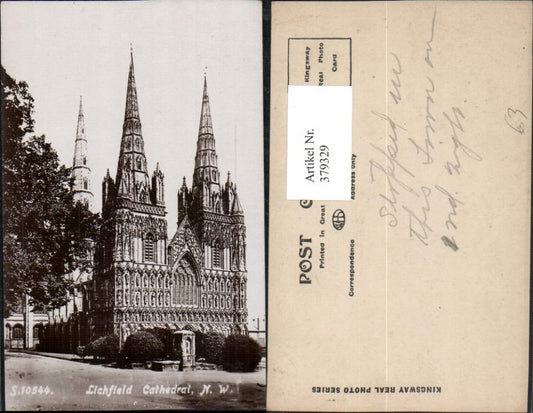 S.10544.
Lichfield Cathedral, N.W.
Kingsway
Real Photo
Card
Artikel Nr.
379329
POST C
Printed in Great
Correspondence
Address only
KINGSWAY REAL PHOTO SERIES
Stopped in
this town on
2nd
63